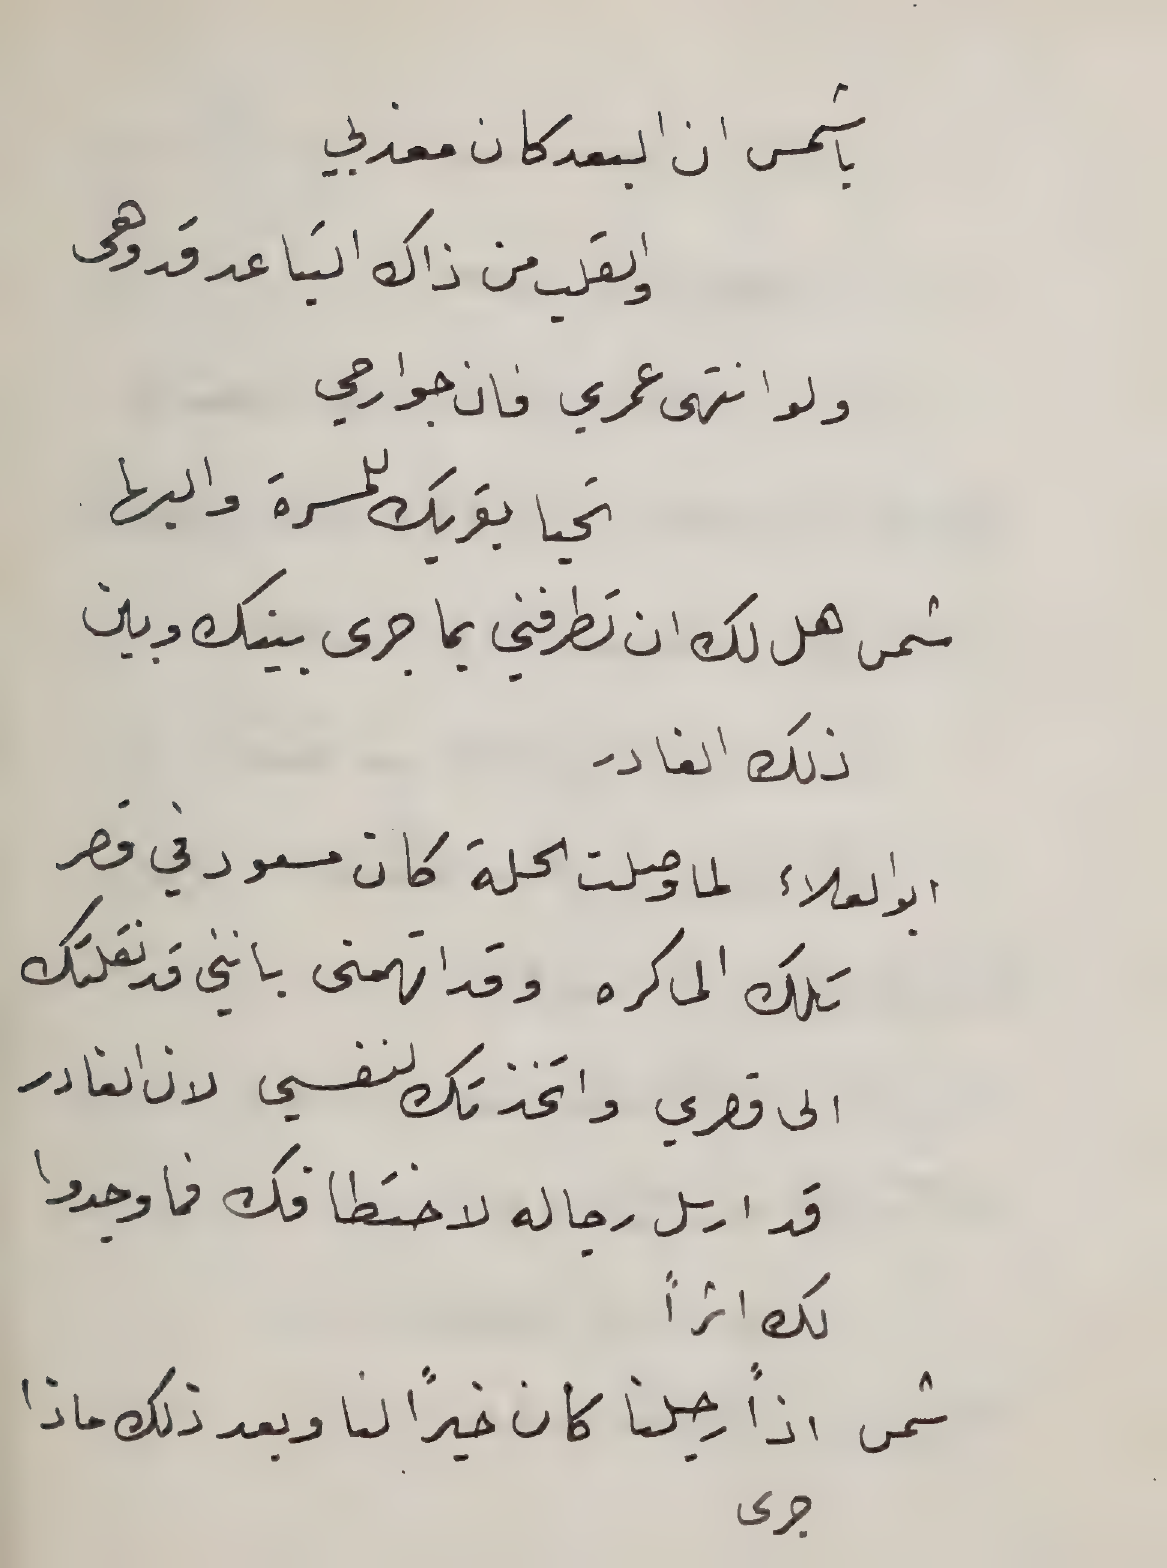 ياشمس ان البعد كان معذبي
والقلب من ذاك التباعد قد وهى
ولو انتهى عمري فان جوارحي
تحيا بقربك للمسرة والبها
شمس هل لك ان تطرفني بما جرى بينك وبين
ذلك الغادر
ابو العلاء لما وصلت الحلة كان مسعود في قصر
تلك الماكره وقد اتهمنى بانني قد نقلتك
الى قصري واتخذتك لنفسي لان الغادر
قد ارسل رجاله لاختطافك فما وجدوا
لك اثراً
شمس اذاً رحيلنا كان خيراً لنا وبعد ذلك ماذا
جرى